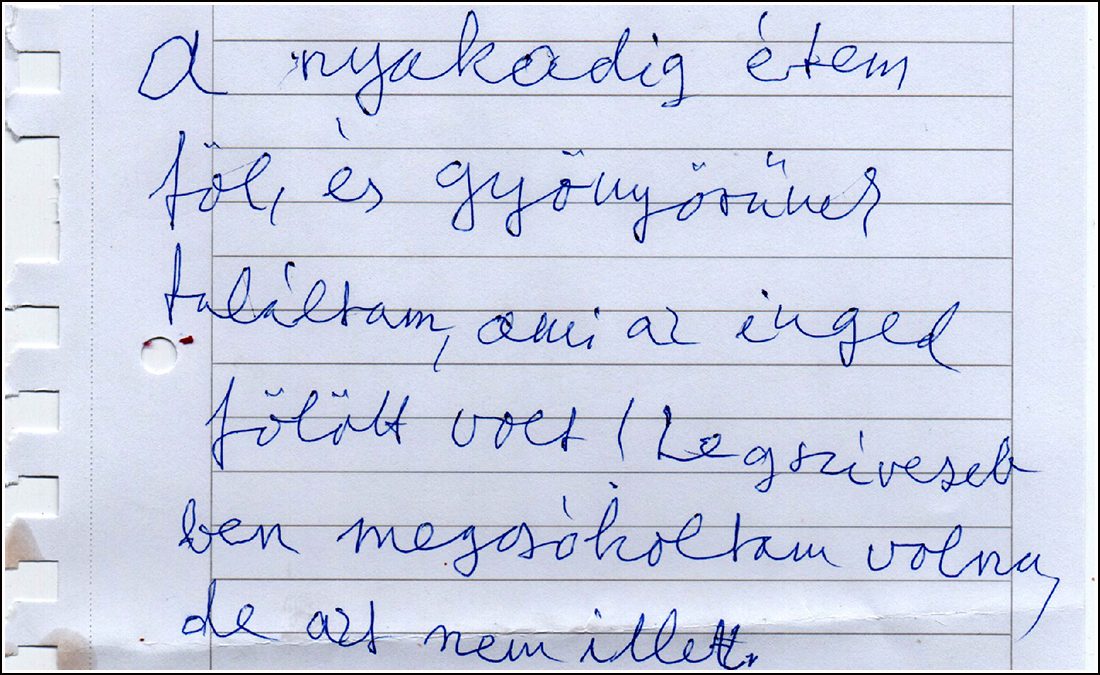 a nyakadig értem
föl, és gyönyörűnek
találtam, ami az inged
fölött volt! Legszíveseb
ben megcsókoltam volna,
de azt nem illett.